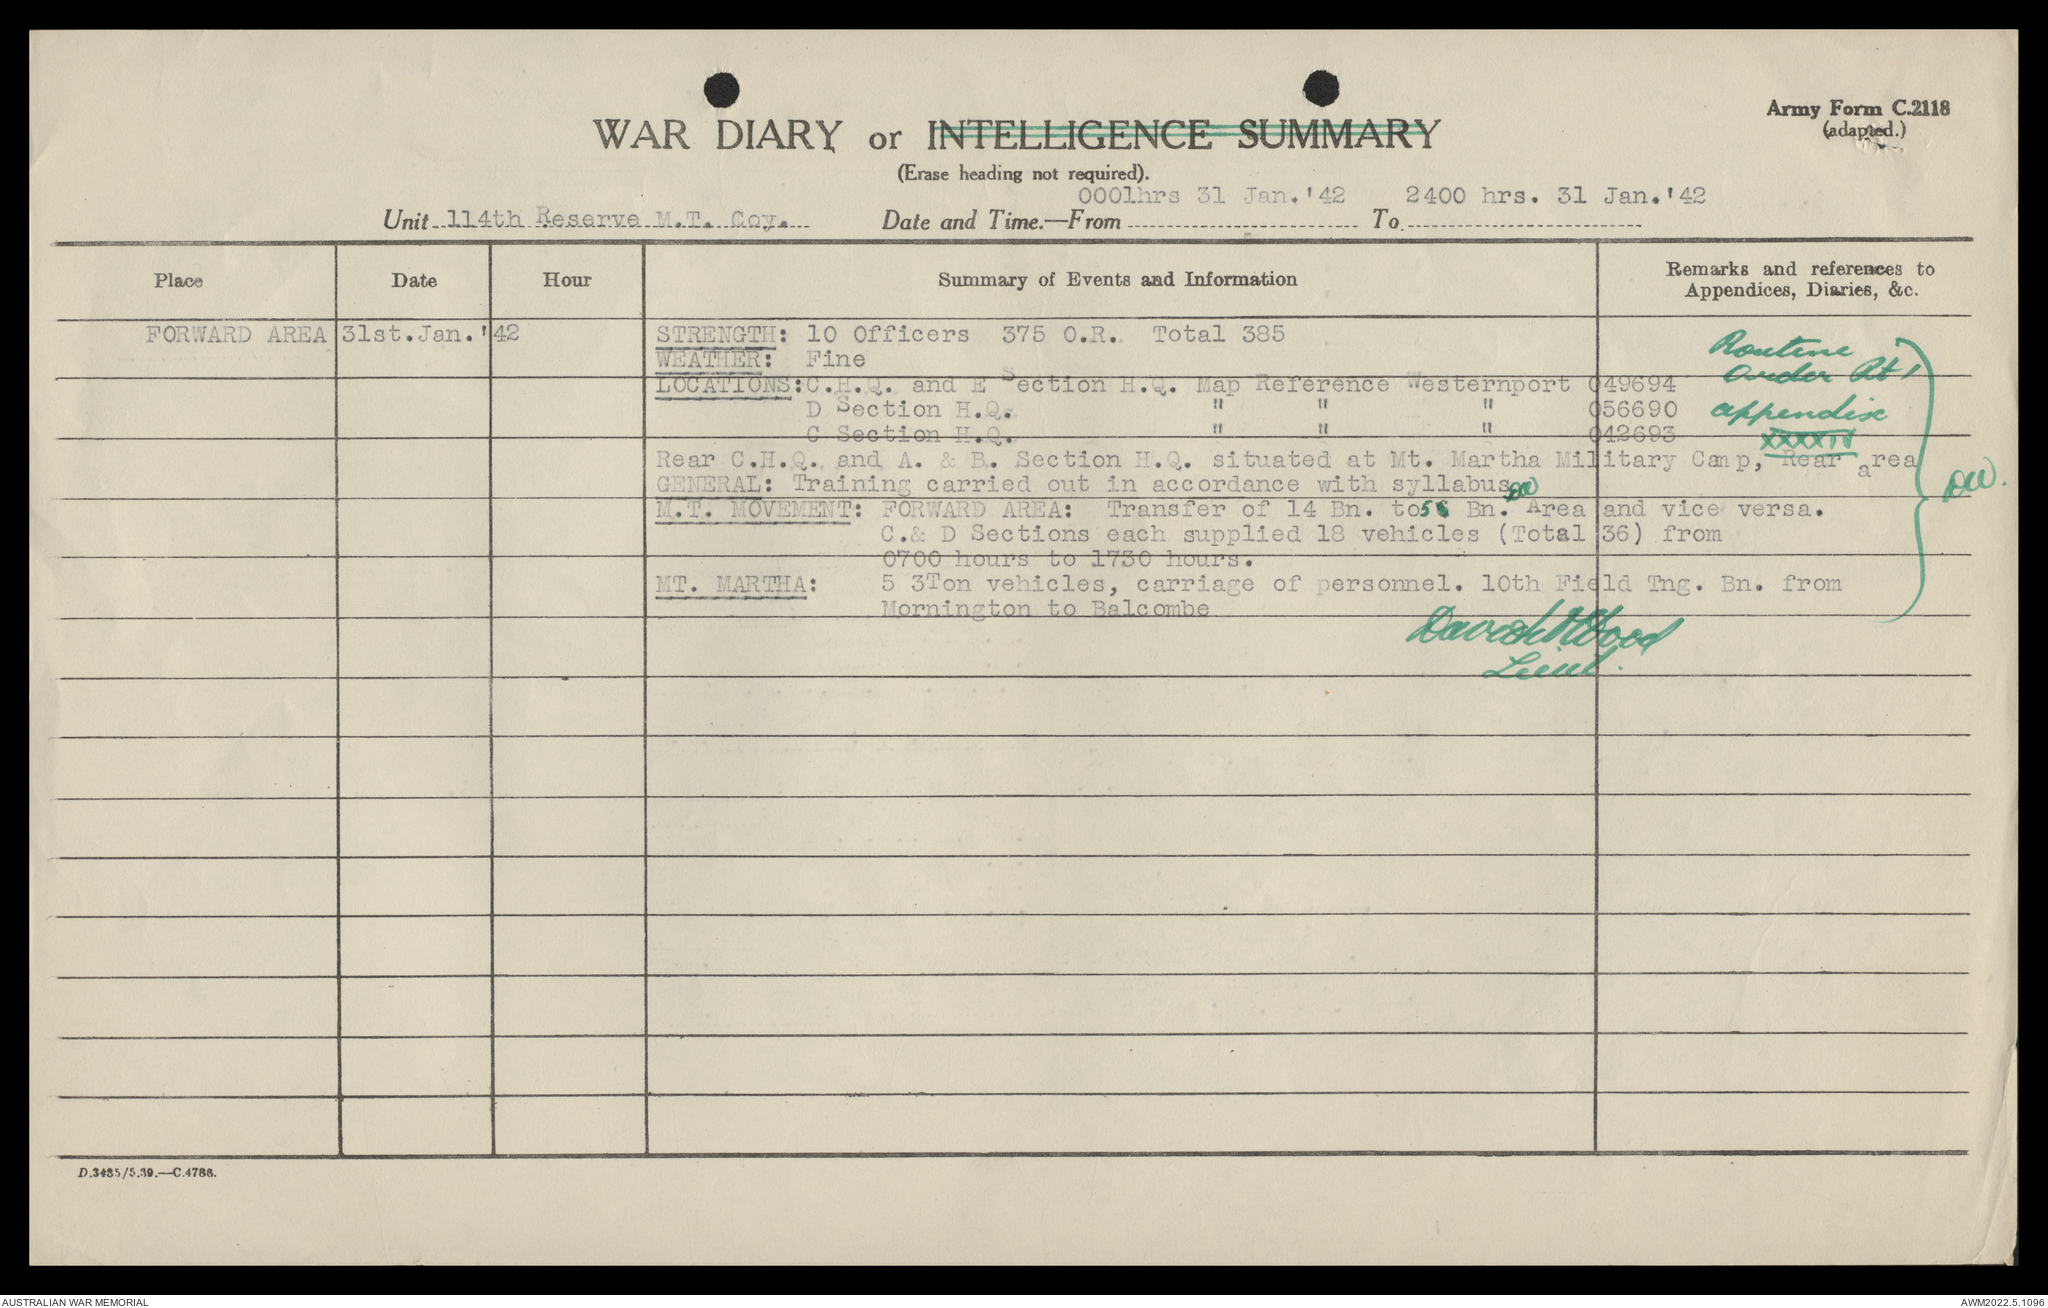 Army Form C.2118
(adapted.)
WAR DIARY or INTELLIGENCE SUMMARY
(Erase heading not required).
0001hrs 31 Jan.'42 2400 hrs. 31 Jan.'42
Unit 114th Reserve M.T. Coy. Date and Time.—From To
Place Date Hour Summary of Events and Information Remarks and references to Appendices, Diaries, &c.
FORWARD AREA 31st.Jan.'42 STRENGTH: 10 Officers 375 O.R. Total 385
WEATHER: Fine
LOCATIONS: C.H.Q. and E Section H.Q. Map Reference Westernport 049694
D Section H.Q. " " " 056690
C Section H.Q. " " " 042693
Rear C.H.Q. and A. & B. Section H.Q. situated at Mt. Martha Military Camp, Rear area
GENERAL: Training carried out in accordance with syllabus DW
M.T. MOVEMENT: FORWARD AREA: Transfer of 14 Bn. to 56 Bn. Area and vice versa.
C.& D Sections each supplied 18 vehicles (Total 36) from
0700 hours to 1730 hours.
MT. MARTHA: 5 3Ton vehicles, carriage of personnel. 10th Field Tng. Bn. from
Mornington to Balcombe
Routine
Order Pt 1
appendix
XXXXIV
DW.
David H Wood
Lieut.
D.3485/5.39.—C.4788.
AUSTRALIAN WAR MEMORIAL
AWM2022.5.1096